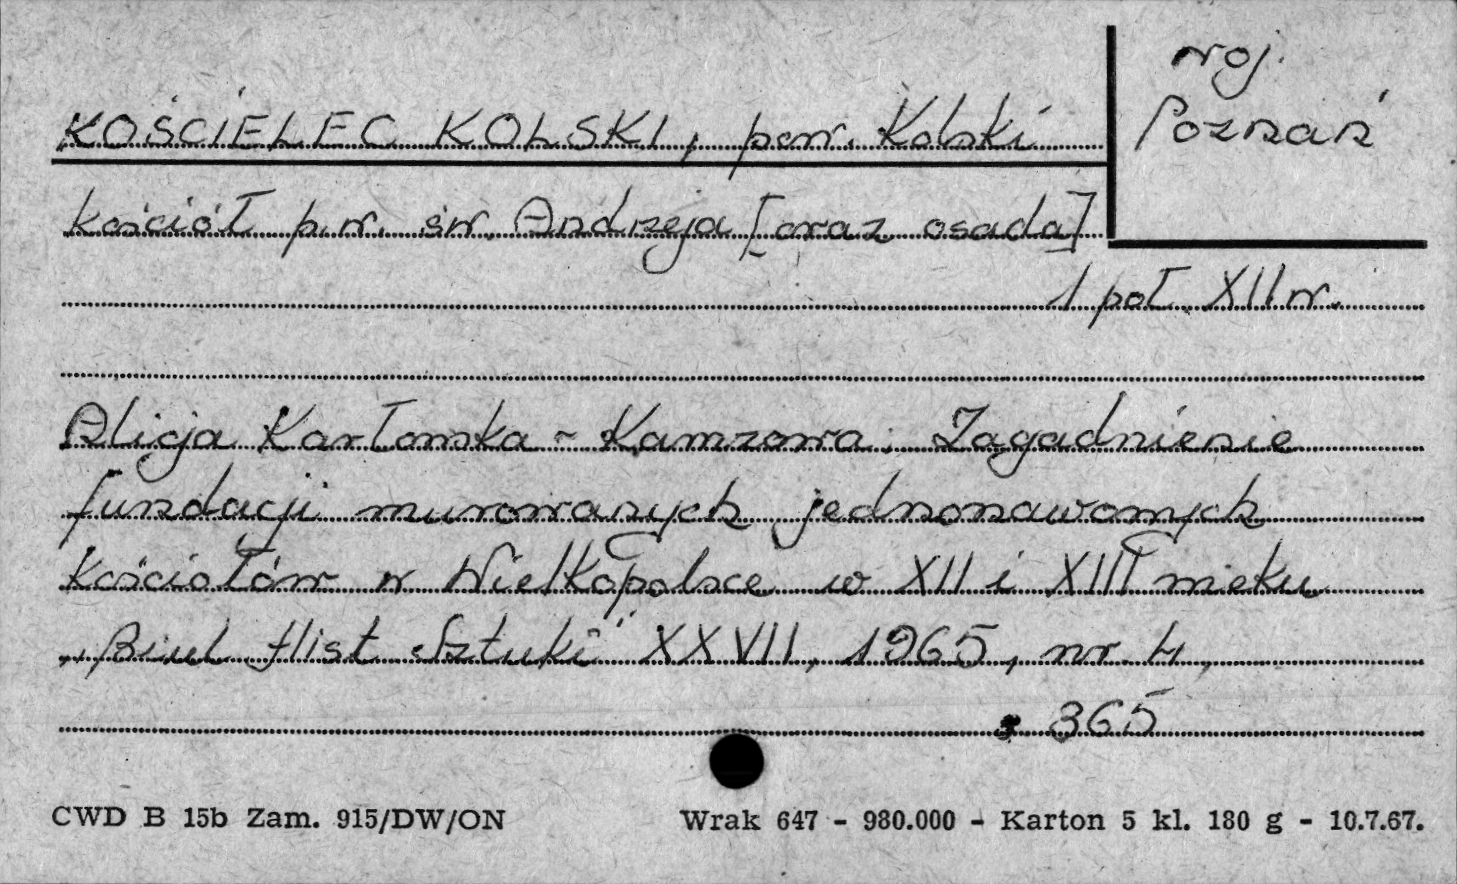 woj.
Poznań
KOŚCIELEC KOLSKI, pow. Kolski
kościół p.w. św. Andrzeja [oraz osada]
1 poł. XII w.
Alicja Karłowska-Kamzowa: Zagadnienie
fundacji murowanych jednonawowych
kościołów w Wielkopolsce w XII i XIII wieku
„Biul Hist Sztuki" XXVII, 1965, nr. 4,
s. 365
CWD B 15b Zam. 915/DW/ON Wrak 647 - 980.000 - Karton 5 kl. 180 g - 10.7.67.